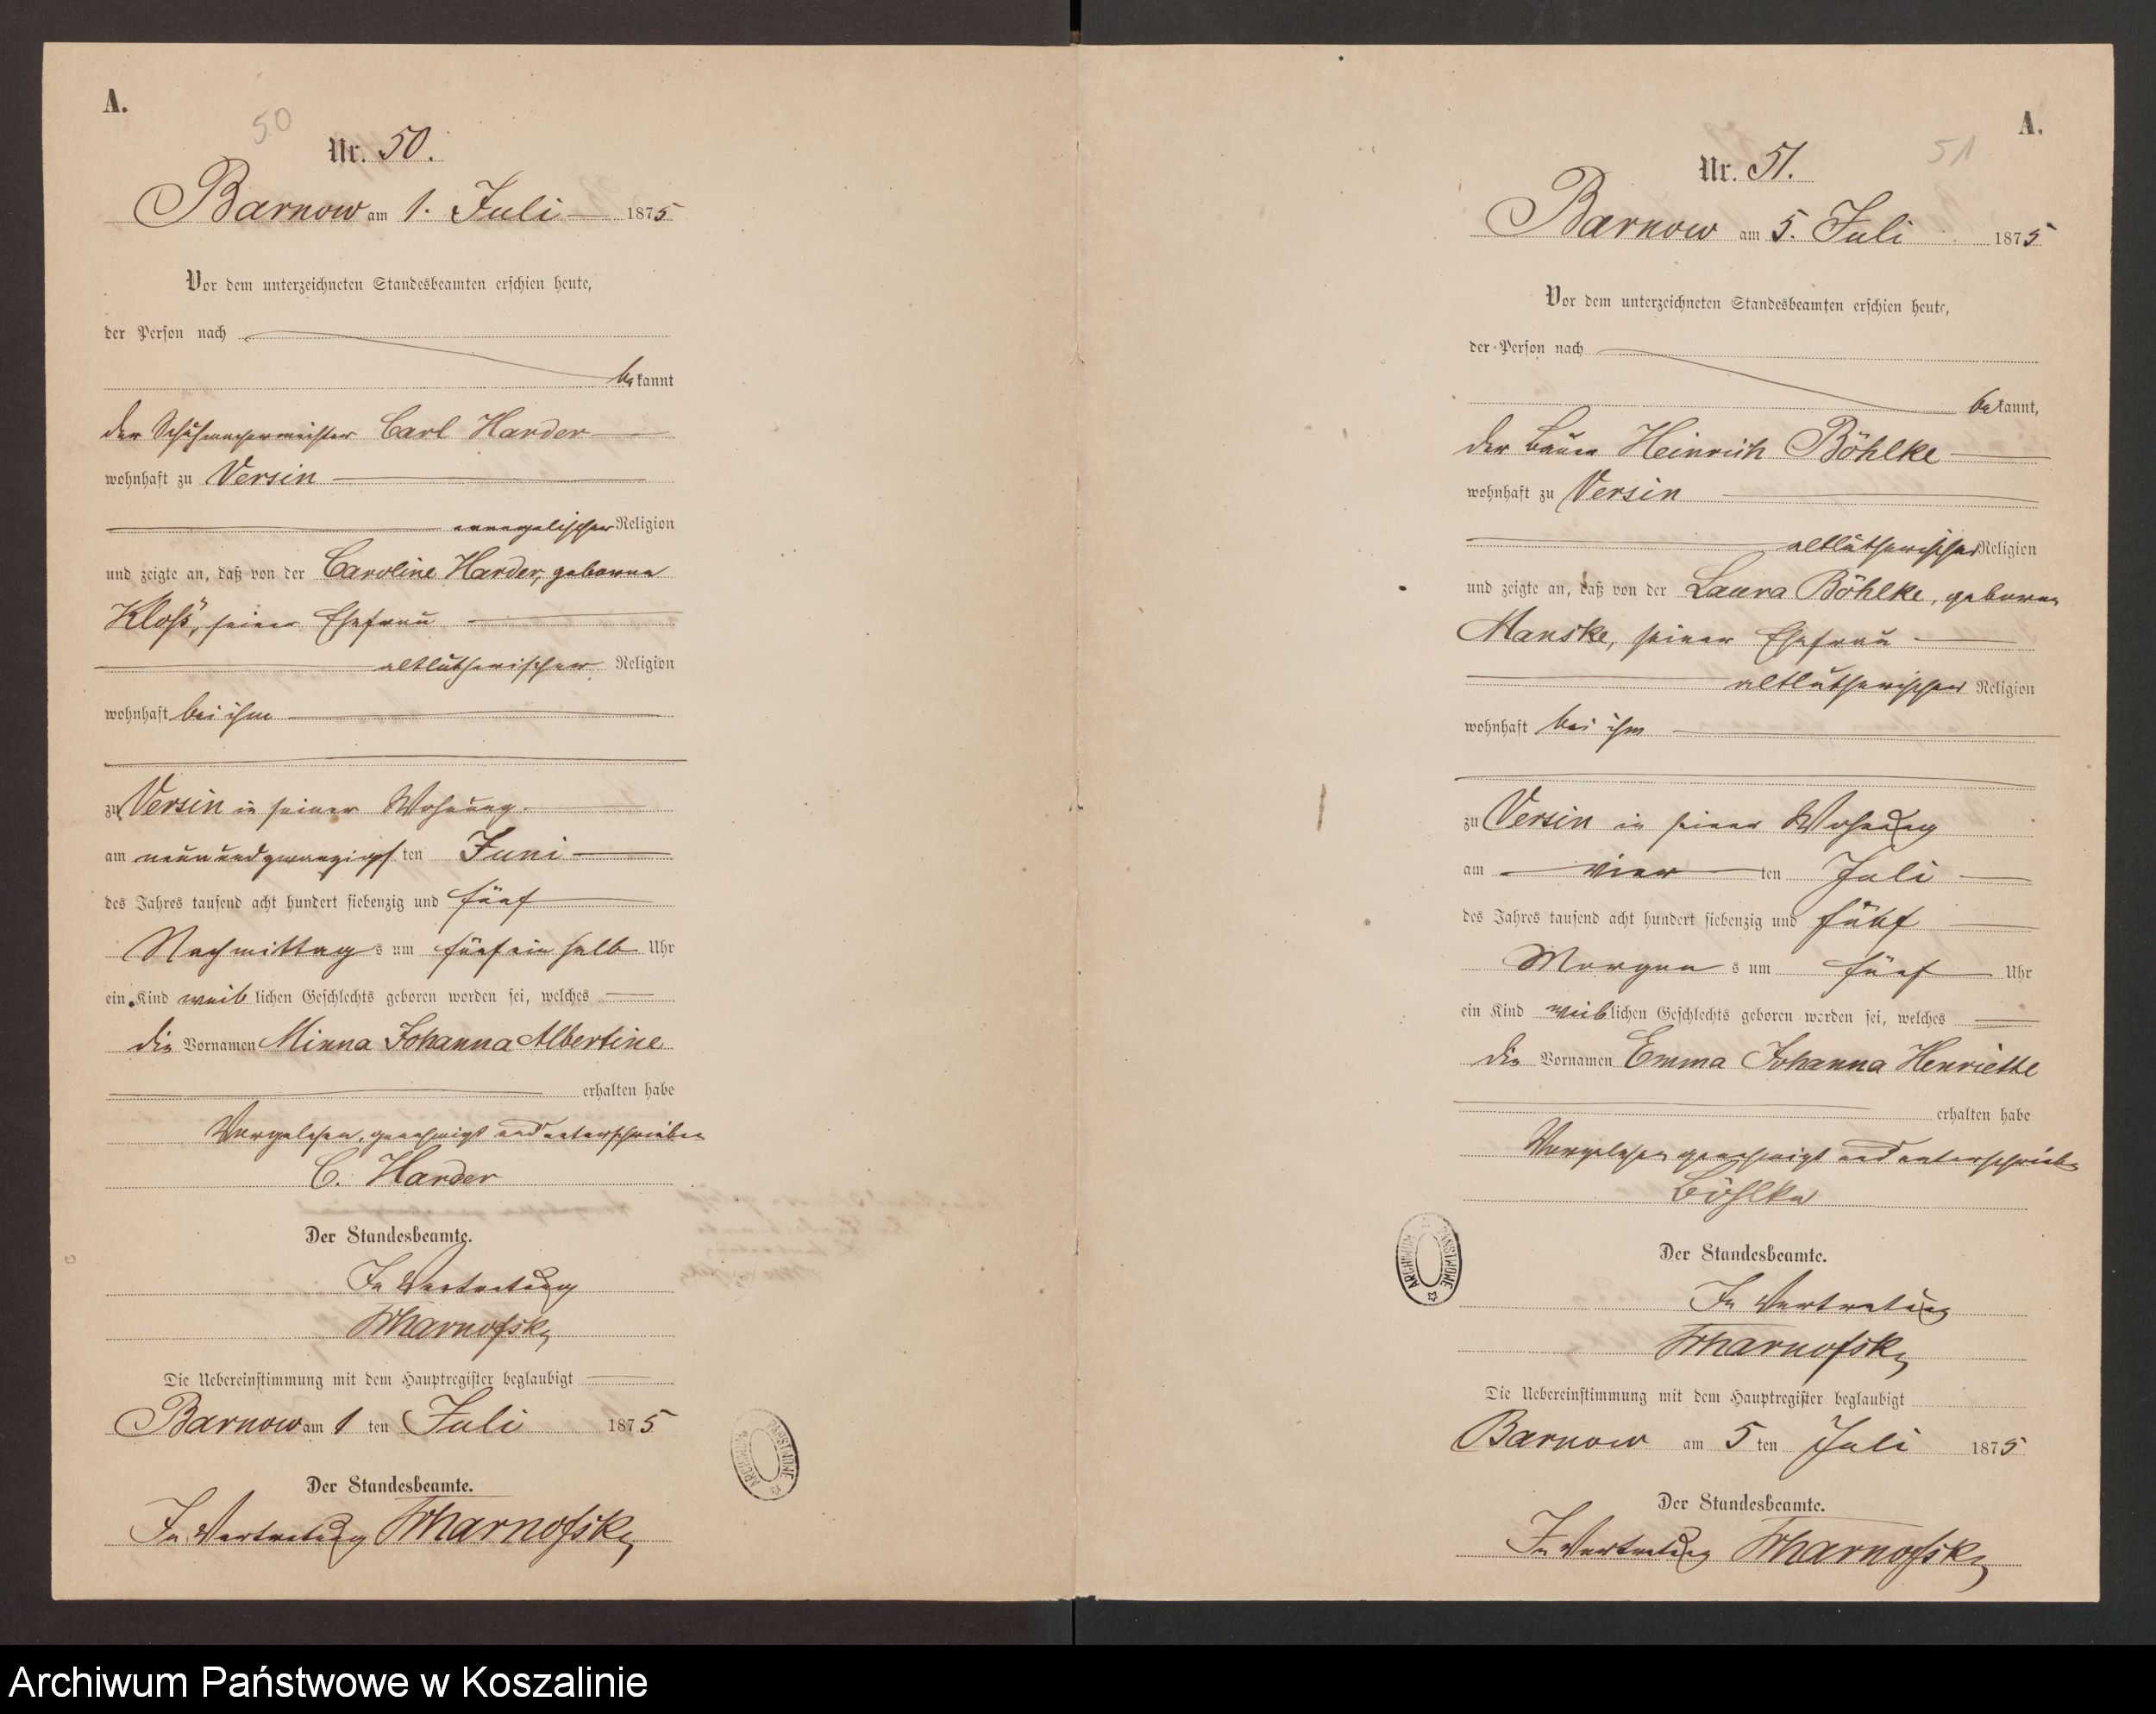 A.
50
Nr. 50.
Barnow am 1. Juli 1875
Vor dem unterzeichneten Standesbeamten erschien heute,
der Person nach
bekannt
der Schuhmachermeister Carl Harder
wohnhaft zu Versin
evangelischer Religion
und zeigte an, daß von der Caroline Harder, geborne
Kloß, seiner Ehefrau
altlutherischer Religion
wohnhaft bei ihm
zu Versin in seiner Wohnung
am neunundzwanzigsten Juni
des Jahres tausend acht hundert siebenzig und fünf
Nachmittags um fünfeinhalb Uhr
ein Kind weiblichen Geschlechts geboren worden sei, welches
die Vornamen Minna Johanna Albertine
erhalten habe
Vorgelesen, genehmigt und unterschrieben
C. Harder
Der Standesbeamte.
In Vertretung
Die Uebereinstimmung mit dem Hauptregister beglaubigt
Barnow am 1 ten Juli 1875
Der Standesbeamte.
In Vertretung
ARCHIWUM PAŃSTWOWE
A.
51
Nr. 51.
Barnow am 5. Juli 1875
Vor dem unterzeichneten Standesbeamten erschien heute,
der Person nach
bekannt,
der Bauer Heinrich Böhlke
wohnhaft zu Versin
altlutherischer Religion
und zeigte an, daß von der Laura Böhlke, geborne
Manske, seiner Ehefrau
altlutherischer Religion
wohnhaft bei ihm
zu Versin in seiner Wohnung
am vierten Juli
des Jahres tausend acht hundert siebenzig und fünf
Morgens um fünf Uhr
ein Kind weiblichen Geschlechts geboren worden sei, welches
die Vornamen Emma Johanna Henriette
erhalten habe
Vorgelesen genehmigt und unterschrieben
Böhlke
Der Standesbeamte.
In Vertretung
Die Uebereinstimmung mit dem Hauptregister beglaubigt
Barnow am 5 ten Juli 1875
Der Standesbeamte.
In Vertretung
ARCHIWUM PAŃSTWOWE
Archiwum Państwowe w Koszalinie